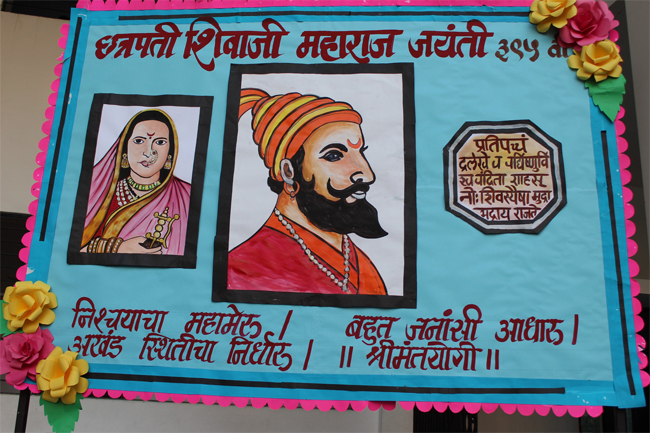 छत्रपती शिवाजी महाराज जयंती ३९५ वी
प्रतिपच्चं
द्रलेखे व वर्धिष्णुर्वि
श्व वंदिता साहसू
नौः शिवस्यैषा मुद्रा
भद्राय राजते
निश्चयाचा महामेरू । बहुत जनांसी आधारू ।
अखंड स्थितीचा निर्धारू । ॥ श्रीमंतयोगी ॥